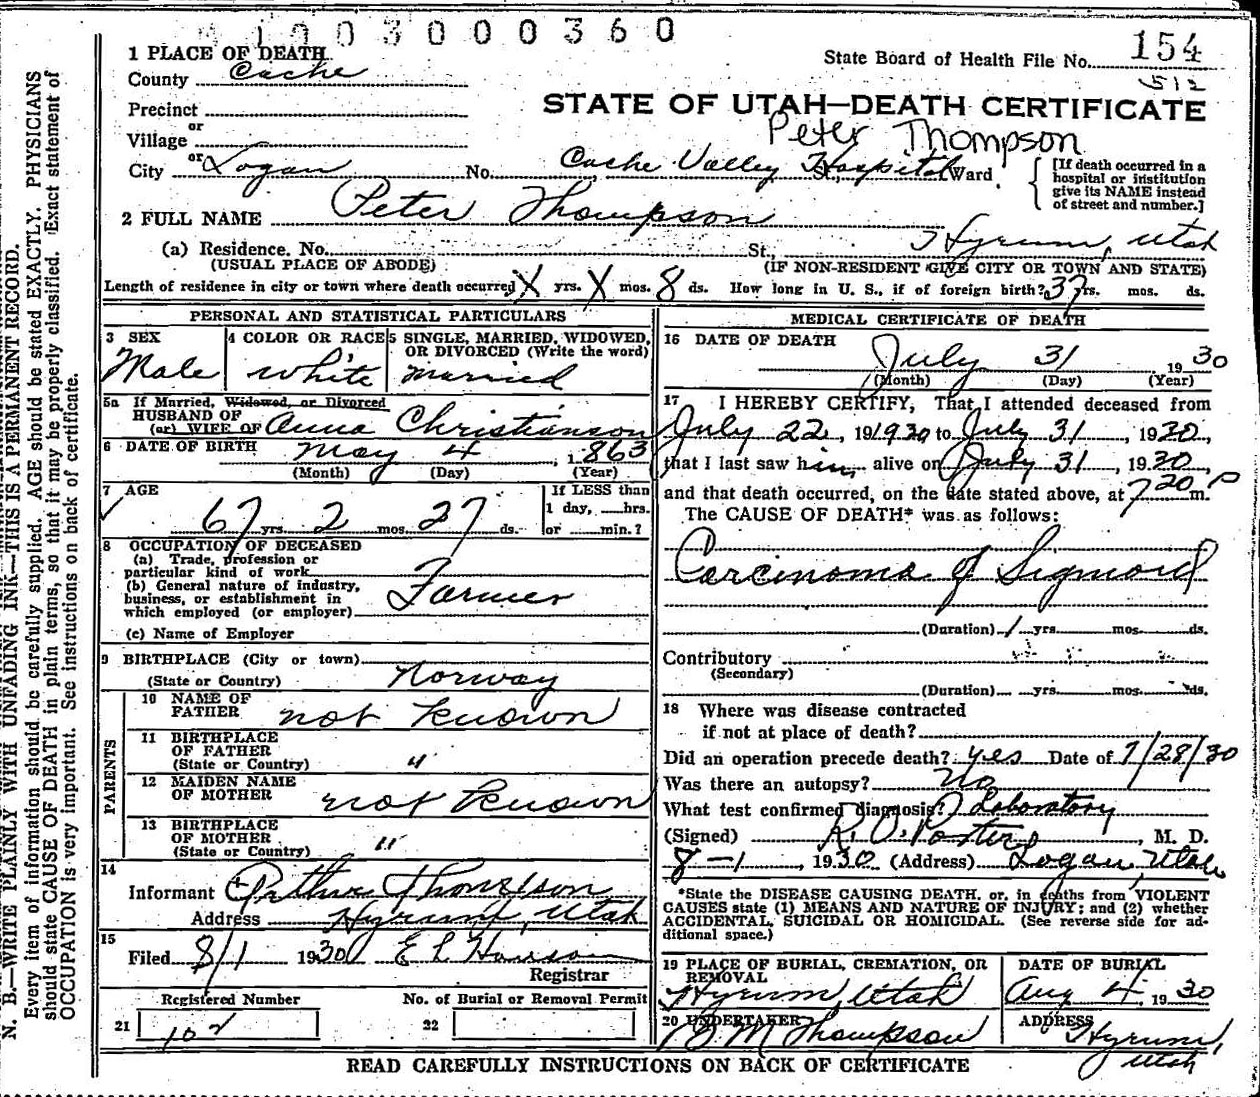 1003000360
1 PLACE OF DEATH
County Cache
State Board of Health File No. 154
512
Precinct
or
Village
STATE OF UTAH—DEATH CERTIFICATE
Peter Thompson
or
City Logan No. Cache Valley Hospital St., Ward
[If death occurred in a hospital or institution give its NAME instead of street and number.]
2 FULL NAME Peter Thompson
(a) Residence. No. St., Hyrum, Utah
(USUAL PLACE OF ABODE) (IF NON-RESIDENT GIVE CITY OR TOWN AND STATE)
Length of residence in city or town where death occurred X yrs. X mos. 8 ds. How long in U. S., if of foreign birth? 37 yrs. mos. ds.
PERSONAL AND STATISTICAL PARTICULARS
3 SEX
Male
4 COLOR OR RACE
White
5 SINGLE, MARRIED, WIDOWED, OR DIVORCED (Write the word)
Married
5a If Married, Widowed, or Divorced
HUSBAND OF
(or) WIFE OF Anna Christianson
6 DATE OF BIRTH May 4, 1863
(Month) (Day) (Year)
7 AGE
67 yrs. 2 mos. 27 ds.
If LESS than
1 day, hrs.
or min.?
8 OCCUPATION OF DECEASED
(a) Trade, profession or
particular kind of work
(b) General nature of industry,
business, or establishment in
which employed (or employer)
Farmer
(c) Name of Employer
9 BIRTHPLACE (City or town)
(State or Country) Norway
PARENTS
10 NAME OF
FATHER not known
11 BIRTHPLACE
OF FATHER
(State or Country) "
12 MAIDEN NAME
OF MOTHER not known
13 BIRTHPLACE
OF MOTHER
(State or Country) "
14
Informant Arthur Thompson
Address Hyrum, Utah
15
Filed 8/1 1930 E L Hanson
Registrar
Registered Number
21 102
No. of Burial or Removal Permit
22
MEDICAL CERTIFICATE OF DEATH
16 DATE OF DEATH
July 31 1930
(Month) (Day) (Year)
17 I HEREBY CERTIFY, That I attended deceased from
July 22, 191930 to July 31, 1930,
that I last saw him alive on July 31, 1930,
and that death occurred, on the date stated above, at 7 20 P m.
The CAUSE OF DEATH* was as follows:
Carcinoma of Sigmoid
(Duration) 1 yrs. mos. ds.
Contributory
(Secondary)
(Duration) yrs. mos. ds.
18 Where was disease contracted
if not at place of death?
Did an operation precede death? Yes Date of 7/28/30
Was there an autopsy? No
What test confirmed diagnosis? Laboratory
(Signed) R. O. Porter, M. D.
8-1, 1930 (Address) Logan, Utah
*State the DISEASE CAUSING DEATH, or, in deaths from VIOLENT
CAUSES state (1) MEANS AND NATURE OF INJURY; and (2) whether
ACCIDENTAL, SUICIDAL OR HOMICIDAL. (See reverse side for ad-
ditional space.)
19 PLACE OF BURIAL, CREMATION, OR
REMOVAL
Hyrum, Utah
DATE OF BURIAL
Aug 4, 1930
20 UNDERTAKER
M Thompson
ADDRESS
Hyrum,
Utah
READ CAREFULLY INSTRUCTIONS ON BACK OF CERTIFICATE
N. B.—WRITE PLAINLY WITH UNFADING INK—THIS IS A PERMANENT RECORD.
Every item of information should be carefully supplied. AGE should be stated EXACTLY. PHYSICIANS
should state CAUSE OF DEATH in plain terms, so that it may be properly classified. Exact statement of
OCCUPATION is very important. See instructions on back of certificate.